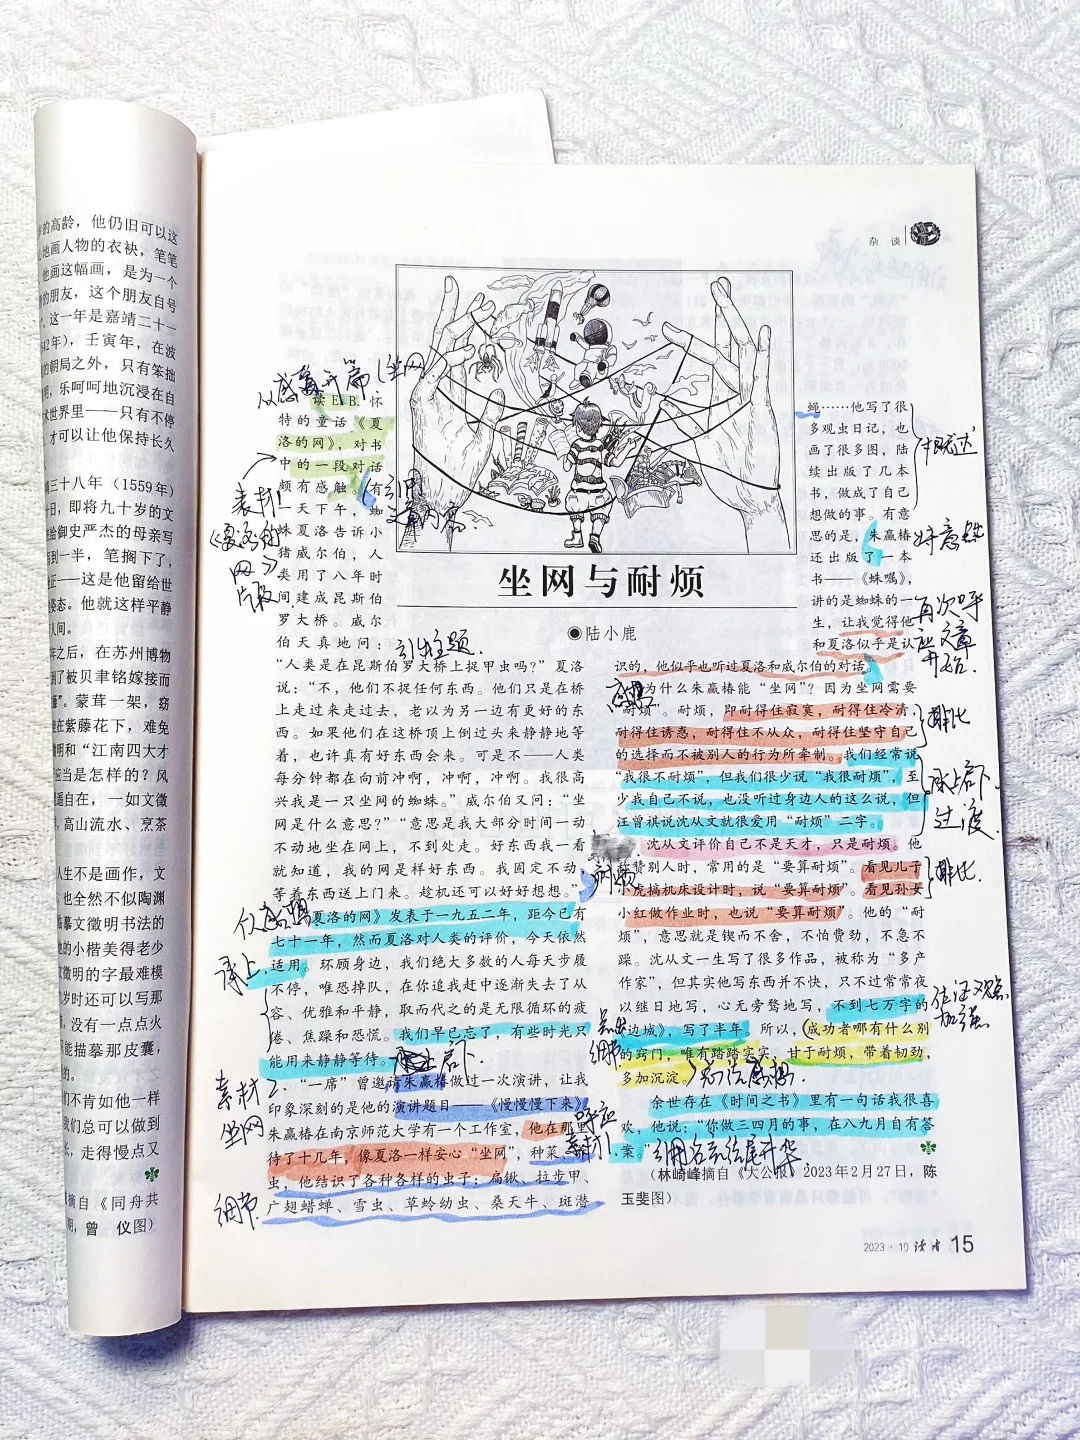 的高龄，他仍旧可以这
地画人物的衣袂，笔笔
他画这幅画，是为一个
的朋友，这个朋友自号
这一年是嘉靖二十一
42年），壬寅年，在波
的朝局之外，只有笨拙
明，乐呵呵地沉浸在自
术世界里——只有不停
才可以让他保持长久
三十八年（1559年）
日，即将九十岁的文
给御史严杰的母亲写
到一半，笔搁下了，
正——这是他留给世
姿态。他就这样平静
人间。
年之后，在苏州博物
到了被贝聿铭嫁接而
蒙茸一架，窈
在紫藤花下，难免
明和“江南四大才
应当是怎样的？风
逍遥自在，一如文徵
高山流水、烹茶
人生不是画作，文
也全然不似陶渊
临摹文徵明书法的
的小楷美得老少
文徵明的字最难模
岁时还可以写那
没有一点点火
可能描摹那皮囊，
的。
们不肯如他一样
我们总可以做到
走得慢点又
摘自《同舟共
期，曾 仪图）
杂谈
坐网与耐烦
●陆小鹿
从感触开篇（坐网）
读E.B.怀
特的童话《夏
洛的网》，对书
中的一段对话
颇有感触。有
一天下午，蜘
蛛夏洛告诉小
猪威尔伯，人
类用了八年时
间建成昆斯伯
罗大桥。威尔
伯天真地问：
“人类是在昆斯伯罗大桥上捉甲虫吗？”夏洛
说：“不，他们不捉任何东西。他们只是在桥
上走过来走过去，老以为另一边有更好的东
西。如果他们在这桥顶上倒过头来静静地等
着，也许真有好东西会来。可是不——人类
每分钟都在向前冲啊，冲啊，冲啊。我很高
兴我是一只坐网的蜘蛛。”威尔伯又问：“坐
网是什么意思？”“意思是我大部分时间一动
不动地坐在网上，不到处走。好东西我一看
就知道，我的网是样好东西。我固定不动，
等着东西送上门来。趁机还可以好好想想。”
夏洛的网》发表于一九五二年，距今已有
七十一年，然而夏洛对人类的评价，今天依然
适用。环顾身边，我们绝大多数的人每天步履
不停，唯恐掉队，在你追我赶中逐渐失去了从
容、优雅和平静，取而代之的是无限循环的疲
惫、焦躁和恐慌。我们早已忘了，有些时光只
能用来静静等待。
“一席”曾邀请朱赢椿做过一次演讲，让我
印象深刻的是他的演讲题目——《慢慢慢下来》
朱赢椿在南京师范大学有一个工作室，他在那里
待了十几年，像夏洛一样安心“坐网”，种菜、
虫，他结识了各种各样的虫子：扁锹、拉步甲、
广翅蜡蝉、雪虫、草蛉幼虫、桑天牛、斑潜
引用
文章内容
素材1
《夏洛的
网》
片段
引出主题
承上
承上启下
素材2
坐网
细节
呼应
素材1
蝇……他写了很
多观虫日记，也
画了很多图，陆
续出版了几本
书，做成了自己
想做的事。有意
思的是，朱赢椿
还出版了一本
书——《蛛嘱》，
讲的是蜘蛛的一
生，让我觉得他
和夏洛似乎是认
识的，他似乎也听过夏洛和威尔伯的对话。
为什么朱赢椿能“坐网”？因为坐网需要
“耐烦”。耐烦，即耐得住寂寞，耐得住冷清，
耐得住诱惑，耐得住不从众，耐得住坚守自己
的选择而不被别人的行为所牵制。我们经常说
“我很不耐烦”，但我们很少说“我很耐烦”，至
少我自己不说，也没听过身边人的这么说，但
汪曾祺说沈从文就很爱用“耐烦”二字。
沈从文评价自己不是天才，只是耐烦。他
称赞别人时，常用的是“要算耐烦”。看见儿子
小虎搞机床设计时，说“要算耐烦”。看见孙女
小红做作业时，也说“要算耐烦”。他的“耐
烦”，意思就是锲而不舍，不怕费劲，不急不
躁。沈从文一生写了很多作品，被称为“多产
作家”，但其实他写东西并不快，只不过常常夜
以继日地写，心无旁骛地写，不到七万字的
《边城》，写了半年。所以，成功者哪有什么别
的窍门，唯有踏踏实实，甘于耐烦，带着韧劲，
多加沉淀。
余世存在《时间之书》里有一句话我很喜
欢，他说：“你做三四月的事，在八九月自有答
案。”
（林崎峰摘自《大公报》2023年2月27日，陈
玉斐图）
概述
再次呼
应文章
开始
排比
承上启下
过渡
耐烦
排比
细节
作证观点
加强
引用名言结尾升华
2023·10 读者 15